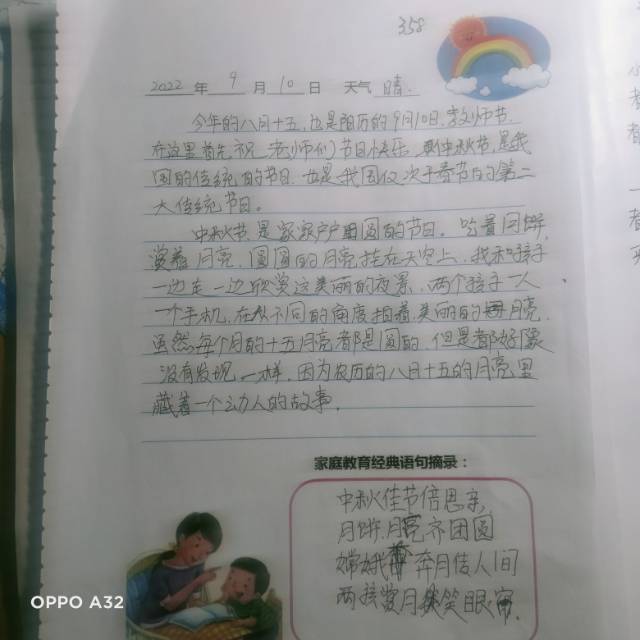 358
2022 年 9 月 10 日 天气 晴.
今年的八月十五,也是阳历的9月10日,教师节
在这里首先祝老师们节日快乐,中秋节,是我
国的传统的节日,也是我国仅次于春节的第二
大传统节日。
中秋节是家家户户团圆的节日。吃着月饼,
赏着月亮,圆圆的月亮挂在天空上,我和孩子
一边走一边欣赏这美丽的夜景,两个孩子一人
一个手机,在从不同的角度拍着美丽的月亮,
虽然每个月的十五月亮都是圆的,但是都好像
没有发现一样,因为农历的八月十五的月亮里
藏着一个动人的故事.
家庭教育经典语句摘录:
中秋佳节倍思亲
月饼月亮齐团圆
嫦娥奔月传人间
两孩赏月笑眼
OPPO A32